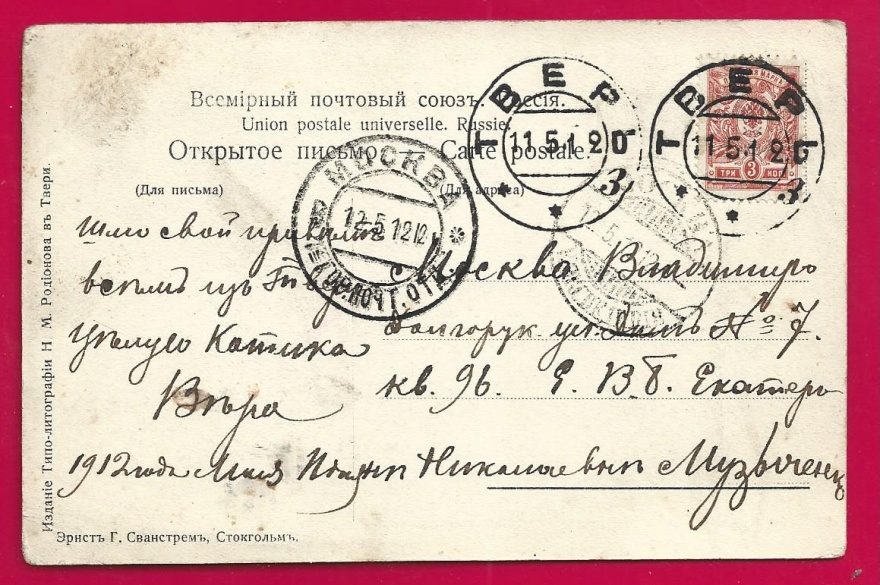 Всемірный почтовый союзъ. Россія.
Union postale universelle. Russie.
Открытое письмо — Carte postale.
(Для письма)
(Для адреса)
ТВЕРЬ
11.5.12
3
ТВЕРЬ
11.5.12
3
МОСКВА
12.5.1912
ТРИ 3 КОП
Шлю свой
всѣмъ изъ
Цѣлую
Вѣра
1912 года Мая
Москва Владимиро
Долгорук ул. Домъ № 7.
кв. 96. Е. В б. Екатер
Николаевнѣ
Изданіе Типо-литографіи Н. М. Родіонова въ Твери.
Эрнстъ Г. Сванстремъ, Стокгольмъ.